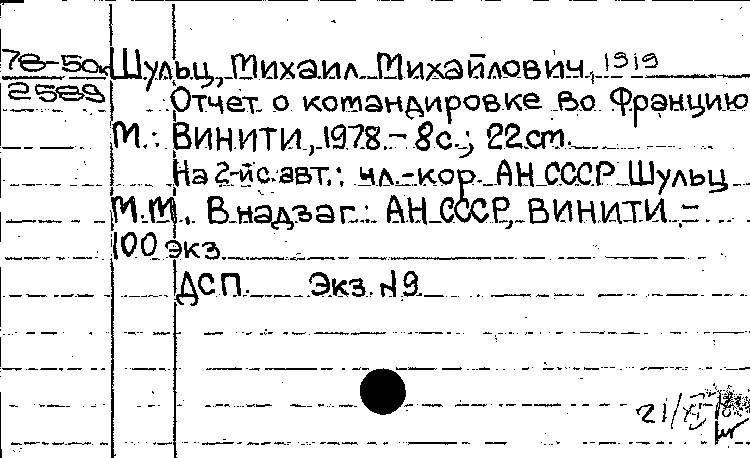 78-50к Шульц, Михаил Михайлович, 1919
2589 Отчет о командировке во Францию
М.: ВИНИТИ, 1978.- 8 с.; 22 cm.
На 2-й с. авт.: чл.-кор. АН СССР Шульц
М.М. В надзаг.: АН СССР, ВИНИТИ.-
100 экз.
ДСП. Экз. №9
21/XI